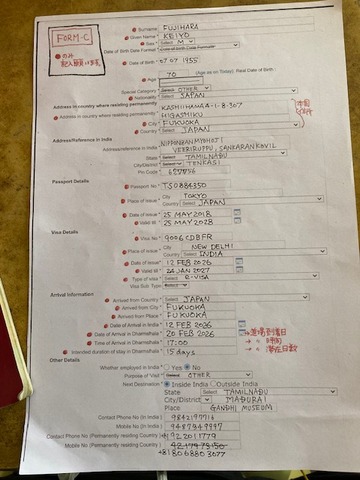 FORM-C
Surname FUJIHARA
Given Name KEIYO
Sex Select M
Date of Birth Date Format Date of Birth Date Format
Date of Birth 07 07 1955
Age 70 (Age as on Today) Real Date of Birth
Special Category Select OTHER
Nationality Select JAPAN
Address in country where residing permanently
Address in country where residing permanently KASHIIHAMA4-1-8-307
HIGASHIKU
City FUKUOKA
Country Select JAPAN
Address/Reference in India
Address/Reference in India NIPPONZAN MYOHOJI
VEERIRUPPU, SANKARANKOVIL
State TAMILNADU
City/District Select TENKASI
Pin Code
Passport Details
Passport No TS0884350
Place of Issue City TOKYO
Country Select JAPAN
Date of issue 25 MAY 2018
Valid till 25 MAY 2028
Visa Details
Visa No 9006CDBFR
Place of issue City NEW DELHI
Country INDIA
Date of issue 12 FEB 2026
Valid till 24 JAN 2027
Type of visa Select e-VISA
Visa Sub Type Select
Arrival Information
Arrived from Country Select JAPAN
Arrived from City FUKUOKA
Arrived from Place FUKUOKA
Date of Arrival in India 12 FEB 2026
Date of Arrival in Dharmshala 20 FEB 2026
Time of Arrival in Dharmshala 17:00
Intended duration of stay in Dharmshala 15 days
滞在日数
Other Details
Whether employed in India Yes No
Purpose of Visit Select OTHER
Next Destination Inside India Outside India
State Select TAMILNADU
City/District MADURAI
Place GANDHI MUSEUM
Contact Phone No (in India) 9842197716
Mobile No (in India) 9487947997
Contact Phone No (Permanently residing Country) +81 92 2011779
Mobile No (Permanently residing Country)
+81 80 6880 3077